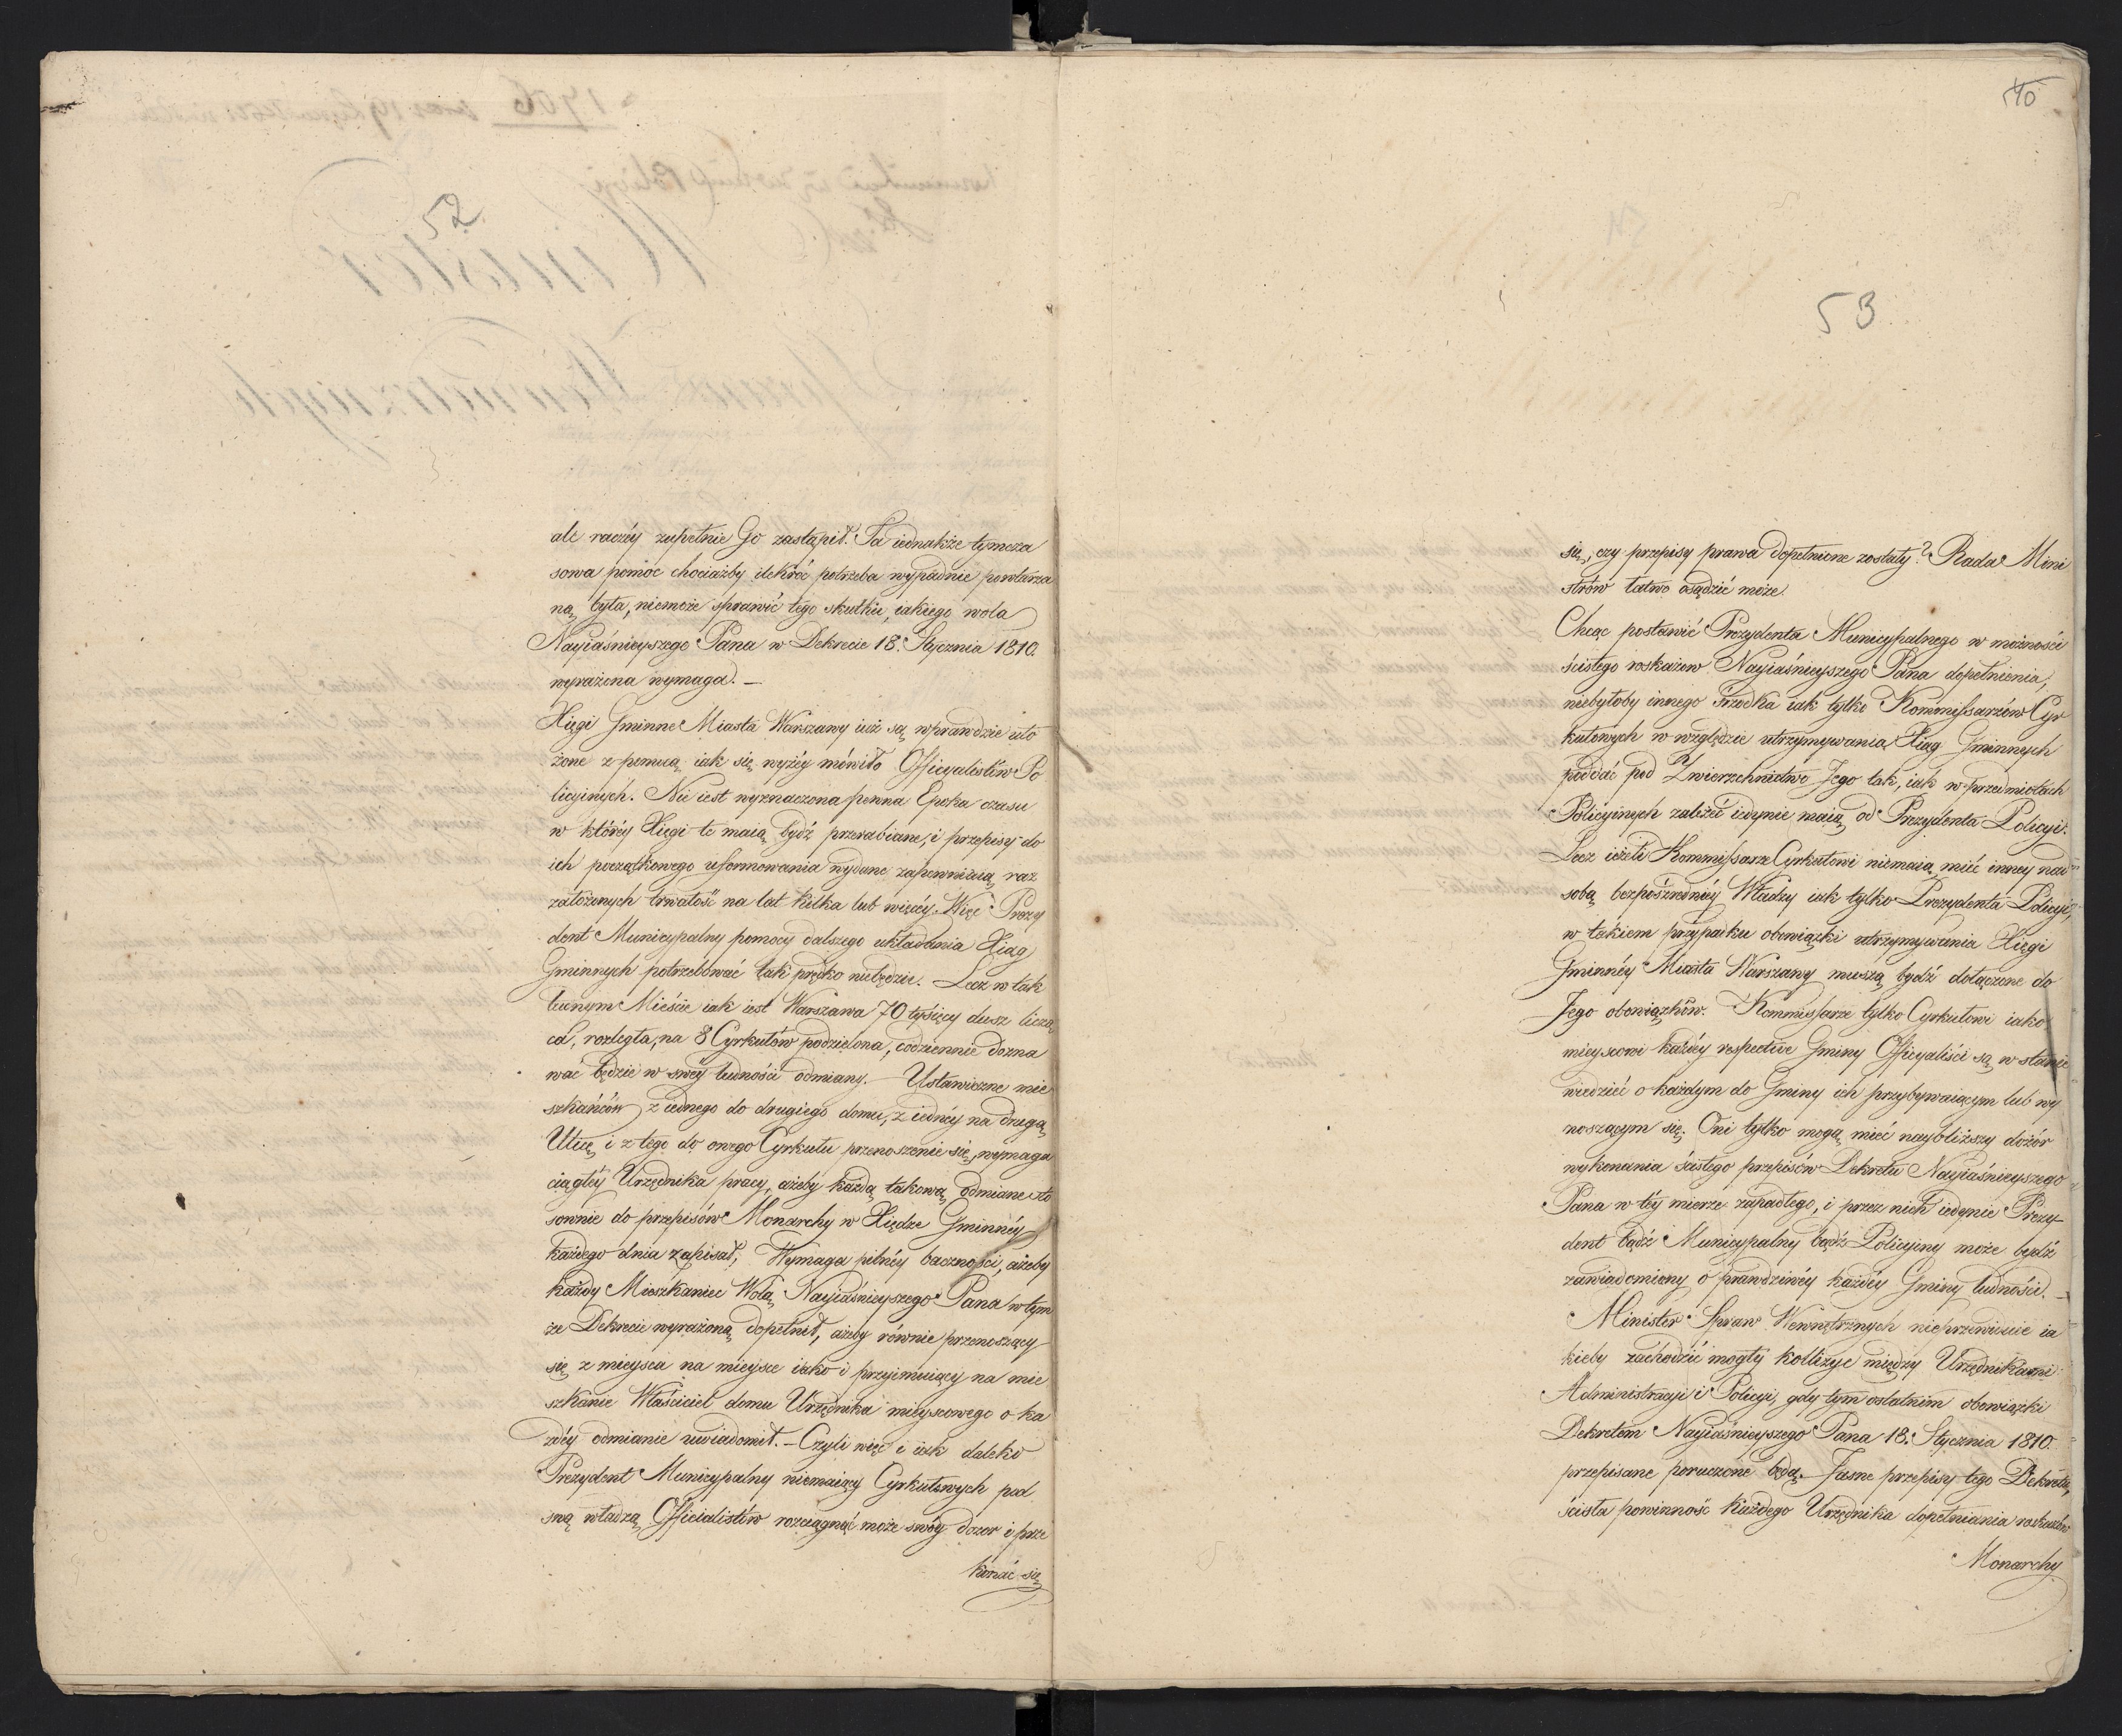 52
ale raczéy zupełnie Go zastąpił. Ta iednakże tymcza
sowa pomoc chociażby ilekroć potrzeba wypadnie powtarza
ną była, niemoże sprawić tego skutku, iakiego wola
Nayiaśnieyszego Pana w Dekrecie 18. Stycznia 1810.
wyrażona wymaga. —
Xięgi Gminne Miasta Warszawy iuż są wprawdzie uło
żone z pomocą iak się wyżéy mówiło Officyalistów Po
licyinych. Nie iest wyznaczona pewna Epoka czasu
w któréy Xięgi te maią bydź przerabiane, i przepisy do
ich początkowego uformowania wydane zapewniaią raz
założonych trwałość na lat kilka lub więcéy. Więc Prezy
dent Municypalny pomocy dalszego układania Xiąg
Gminnych potrzebować tak prędko niebędzie. Lecz w tak
ludnym Mieście iak iest Warszawa 70 tysięcy dusz licząca
cá, rozległa, na 8 Cyrkułów podzielona, codziennie dozna
wać będzie w swéy ludności odmiany. — Ustawiczne mie
szkańców z iednego do drugiego domu, z iednéy na drugą
Ulicę i z tego do onego Cyrkułu przenoszenie się, wymaga
ciągłéy Urzędnika pracy, ażeby każdą takową odmianę sto
sownie do przepisów Monarchy w Xiędze Gminnéy
każdego dnia zapisał, Wymaga pilnéy baczności, ażeby
każdy Mieszkaniec Wolą Nayiaśnieyszego Pana w tym
że Dekrecie wyrażoną dopełnił, ażeby równie przenoszący
się z mieysca na mieysce iako i przyimuiący na mie
szkanie Właściciel domu Urzędnika mieyscowego o ka
żdéy odmianie uwiadomił. — Czyli więc i iak daleko
Prezydent Municypalny niemaiący Cyrkułowych pod
swą władzą Officialistów rozciągnąć może swóy dozor i prze
konać się
53
się, czy przepisy prawa dopełnione zostały? Rada Mini
strów łatwo osądzić może.
Chcąc postawić Prezydenta Municypalnego w możności
ścisłego roskazow Nayiaśnieyszego Pana dopełnienia,
niebyłoby innego śrzodka iak tylko Kommissarzów Cyr
kułowych w względzie utrzymywania Xiąg Gminnych
poddać pod Zwierzchnictwo Jego tak, iak w przedmiotach
Policyinych zależeć iedynie maią od Prezydenta Policyi.
Lecz ieżeli Kommissarze Cyrkułowi niemaią mieć innéy nad
sobą bezpośredniéy Władzy iak tylko Prezydenta Policyi,
w takiem przypadku obowiązki utrzymywania Xięgi
Gminnéy Miasta Warszawy muszą bydź dołączone do
Jego obowiązków. Kommissarze tylko Cyrkułowi iako
mieyscowi każdéy respective Gminy Officyaliści są w stanie
wiedzieć o każdym do Gminy ich przybywaiącym lub wy
noszącym się; Oni tylko mogą mieć naybliższy dozór
wykonania ścisłego przepisów Dekretu Nayiaśnieyszego
Pana w téy mierze zapadłego, i przez nich iedynie Prezy
dent bądź Municypalny bądź Policyiny może bydź
zawiadomiony o prawdziwéy każdéy Gminy ludności. —
Minister Spraw Wewnętrznych nieprzewiduie ia
kieby zachodzić mogły kollizye między Urzędnikami
Administracyi i Policyi, gdy tym ostatnim obowiązki
Dekretem Nayiaśnieyszego Pana 18. Stycznia 1810.
przepisane poruczone będą. Jasne przepisy tego Dekretu,
ścisła powinność każdego Urzędnika dopełniania roskazów
Monarchy